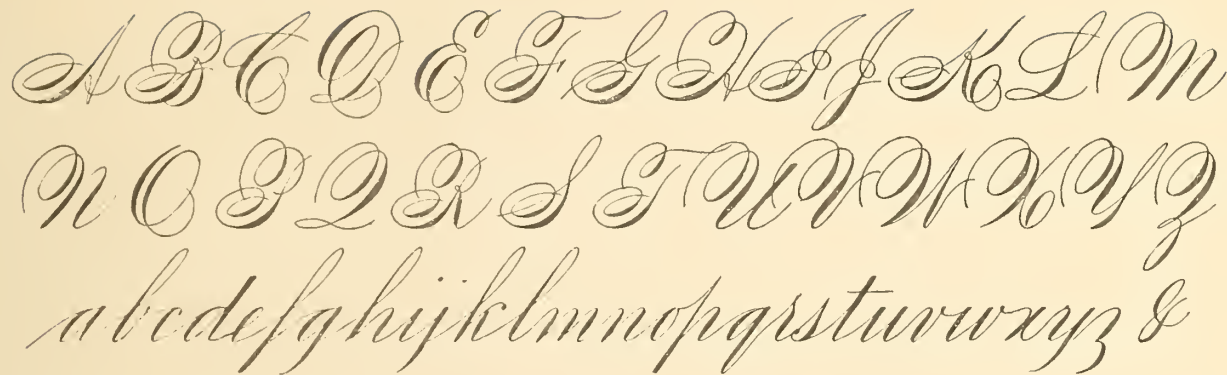 A B C D E F G H I J K L M
N O P Q R S T U V W X Y Z
a b c d e f g h i j k l m n o p q r s t u v w x y z &